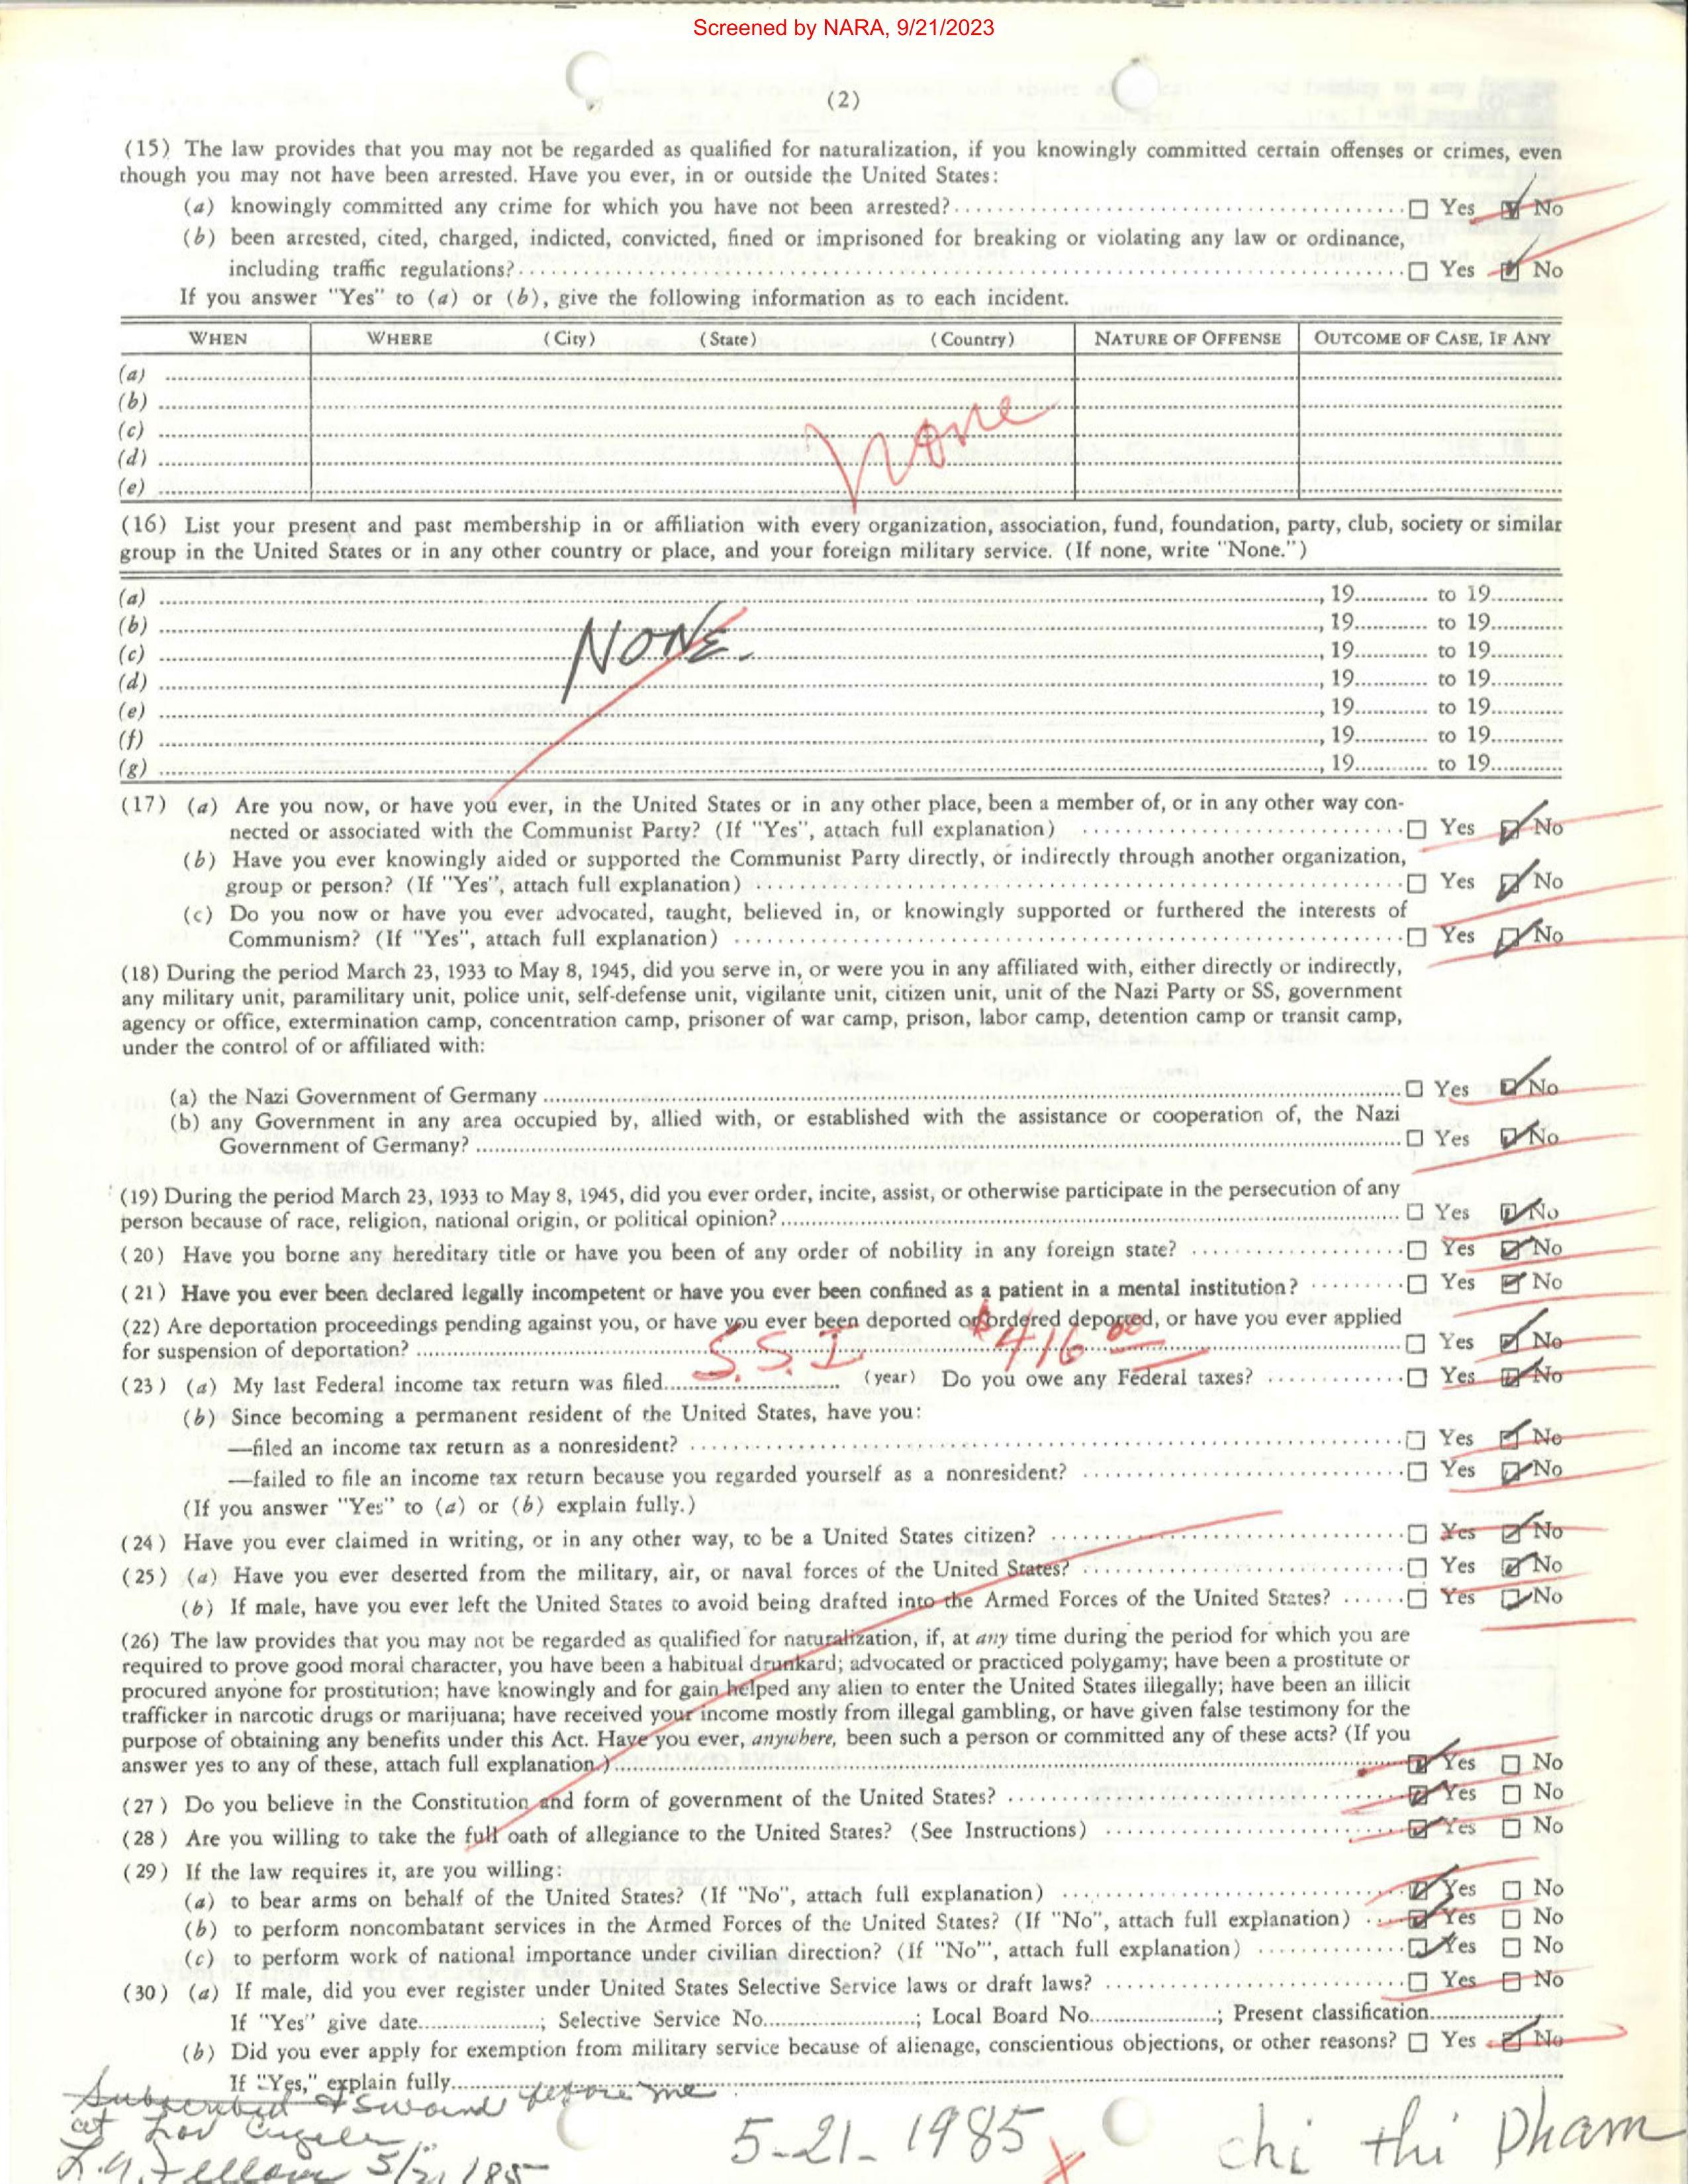 Screened by NARA, 9/21/2023
(2)
(15) The law provides that you may not be regarded as qualified for naturalization, if you knowingly committed certain offenses or crimes, even
though you may not have been arrested. Have you ever, in or outside the United States:
(a) knowingly committed any crime for which you have not been arrested? □ Yes ☑ No
(b) been arrested, cited, charged, indicted, convicted, fined or imprisoned for breaking or violating any law or ordinance,
including traffic regulations? □ Yes ☑ No
If you answer "Yes" to (a) or (b), give the following information as to each incident.
WHEN WHERE (City) (State) (Country) NATURE OF OFFENSE OUTCOME OF CASE, IF ANY
(a)
(b)
(c)
none
(d)
(e)
(16) List your present and past membership in or affiliation with every organization, association, fund, foundation, party, club, society or similar
group in the United States or in any other country or place, and your foreign military service. (If none, write "None.")
(a) , 19 to 19
(b) , 19 to 19
(c) NONE. , 19 to 19
(d) , 19 to 19
(e) , 19 to 19
(f) , 19 to 19
(g) , 19 to 19
(17) (a) Are you now, or have you ever, in the United States or in any other place, been a member of, or in any other way con-
nected or associated with the Communist Party? (If "Yes", attach full explanation) □ Yes ☑ No
(b) Have you ever knowingly aided or supported the Communist Party directly, or indirectly through another organization,
group or person? (If "Yes", attach full explanation) □ Yes ☑ No
(c) Do you now or have you ever advocated, taught, believed in, or knowingly supported or furthered the interests of
Communism? (If "Yes", attach full explanation) □ Yes ☑ No
(18) During the period March 23, 1933 to May 8, 1945, did you serve in, or were you in any affiliated with, either directly or indirectly,
any military unit, paramilitary unit, police unit, self-defense unit, vigilante unit, citizen unit, unit of the Nazi Party or SS, government
agency or office, extermination camp, concentration camp, prisoner of war camp, prison, labor camp, detention camp or transit camp,
under the control of or affiliated with:
(a) the Nazi Government of Germany □ Yes ☑ No
(b) any Government in any area occupied by, allied with, or established with the assistance or cooperation of, the Nazi
Government of Germany? □ Yes ☑ No
(19) During the period March 23, 1933 to May 8, 1945, did you ever order, incite, assist, or otherwise participate in the persecution of any
person because of race, religion, national origin, or political opinion? □ Yes ☑ No
(20) Have you borne any hereditary title or have you been of any order of nobility in any foreign state? □ Yes ☑ No
(21) Have you ever been declared legally incompetent or have you ever been confined as a patient in a mental institution? □ Yes ☑ No
(22) Are deportation proceedings pending against you, or have you ever been deported or ordered deported, or have you ever applied
for suspension of deportation? □ Yes ☑ No
S.S.I. $416 00
(23) (a) My last Federal income tax return was filed (year) Do you owe any Federal taxes? □ Yes ☑ No
(b) Since becoming a permanent resident of the United States, have you:
—filed an income tax return as a nonresident? □ Yes ☑ No
—failed to file an income tax return because you regarded yourself as a nonresident? □ Yes ☑ No
(If you answer "Yes" to (a) or (b) explain fully.)
(24) Have you ever claimed in writing, or in any other way, to be a United States citizen? □ Yes ☑ No
(25) (a) Have you ever deserted from the military, air, or naval forces of the United States? □ Yes ☑ No
(b) If male, have you ever left the United States to avoid being drafted into the Armed Forces of the United States? □ Yes ☑ No
(26) The law provides that you may not be regarded as qualified for naturalization, if, at any time during the period for which you are
required to prove good moral character, you have been a habitual drunkard; advocated or practiced polygamy; have been a prostitute or
procured anyone for prostitution; have knowingly and for gain helped any alien to enter the United States illegally; have been an illicit
trafficker in narcotic drugs or marijuana; have received your income mostly from illegal gambling, or have given false testimony for the
purpose of obtaining any benefits under this Act. Have you ever, anywhere, been such a person or committed any of these acts? (If you
answer yes to any of these, attach full explanation.) ☑ Yes □ No
(27) Do you believe in the Constitution and form of government of the United States? ☑ Yes □ No
(28) Are you willing to take the full oath of allegiance to the United States? (See Instructions) ☑ Yes □ No
(29) If the law requires it, are you willing:
(a) to bear arms on behalf of the United States? (If "No", attach full explanation) ☑ Yes □ No
(b) to perform noncombatant services in the Armed Forces of the United States? (If "No", attach full explanation) ☑ Yes □ No
(c) to perform work of national importance under civilian direction? (If "No"', attach full explanation) ☑ Yes □ No
(30) (a) If male, did you ever register under United States Selective Service laws or draft laws? □ Yes □ No
If "Yes" give date ; Selective Service No. ; Local Board No. ; Present classification
(b) Did you ever apply for exemption from military service because of alienage, conscientious objections, or other reasons? □ Yes ☑ No
If "Yes," explain fully
Subscribed & sworn before me
at Los Angeles
5/21/85
5-21-1985 X chi thi Pham